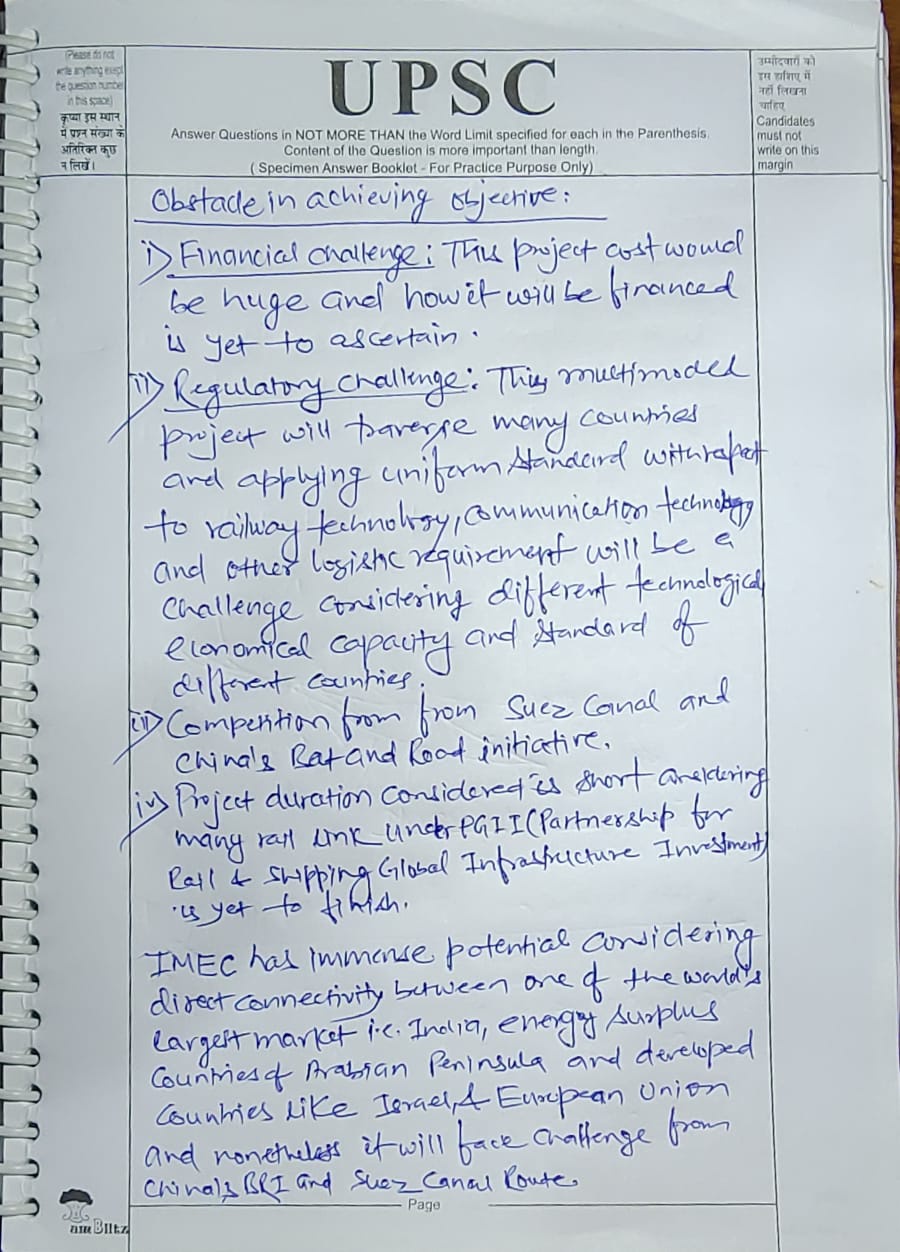 (Please do not
write anything exept
the question number
in this space)
कृप्या इस स्थान
में प्रश्न संख्या के
अतिरिक्त कुछ
न लिखें।
UPSC
Answer Questions in NOT MORE THAN the Word Limit specified for each in the Parenthesis.
Content of the Question is more important than length.
( Specimen Answer Booklet - For Practice Purpose Only)
उम्मीदवारों को
इस हाशिए में
नहीं लिखना
चाहिए
Candidates
must not
write on this
margin
Obstacle in achieving objective:
i) Financial challenge: This project cost would
be huge and how it will be financed
is yet to ascertain.
ii) Regulatory challenge: This multimodel
project will traverse many countries
and applying uniform standard with respect
to railway technology, communication technology
and other logistic requirement will be a
challenge considering different technological
economical capacity and standard of
different countries.
iii) Competition from from Suez Canal and
China's Belt and Road initiative.
iv) Project duration considered is short considering
many rail link under PGII (Partnership for
Rail & shipping Global Infrastructure Investment)
is yet to finish.
IMEC has immense potential considering
direct connectivity between one of the world's
largest market i.e. India, energy surplus
countries of Arabian Peninsula and developed
countries like Israel, & European Union
and nonetheless it will face challenge from
China's BRI and Suez Canal Route.
Page
am Blitz